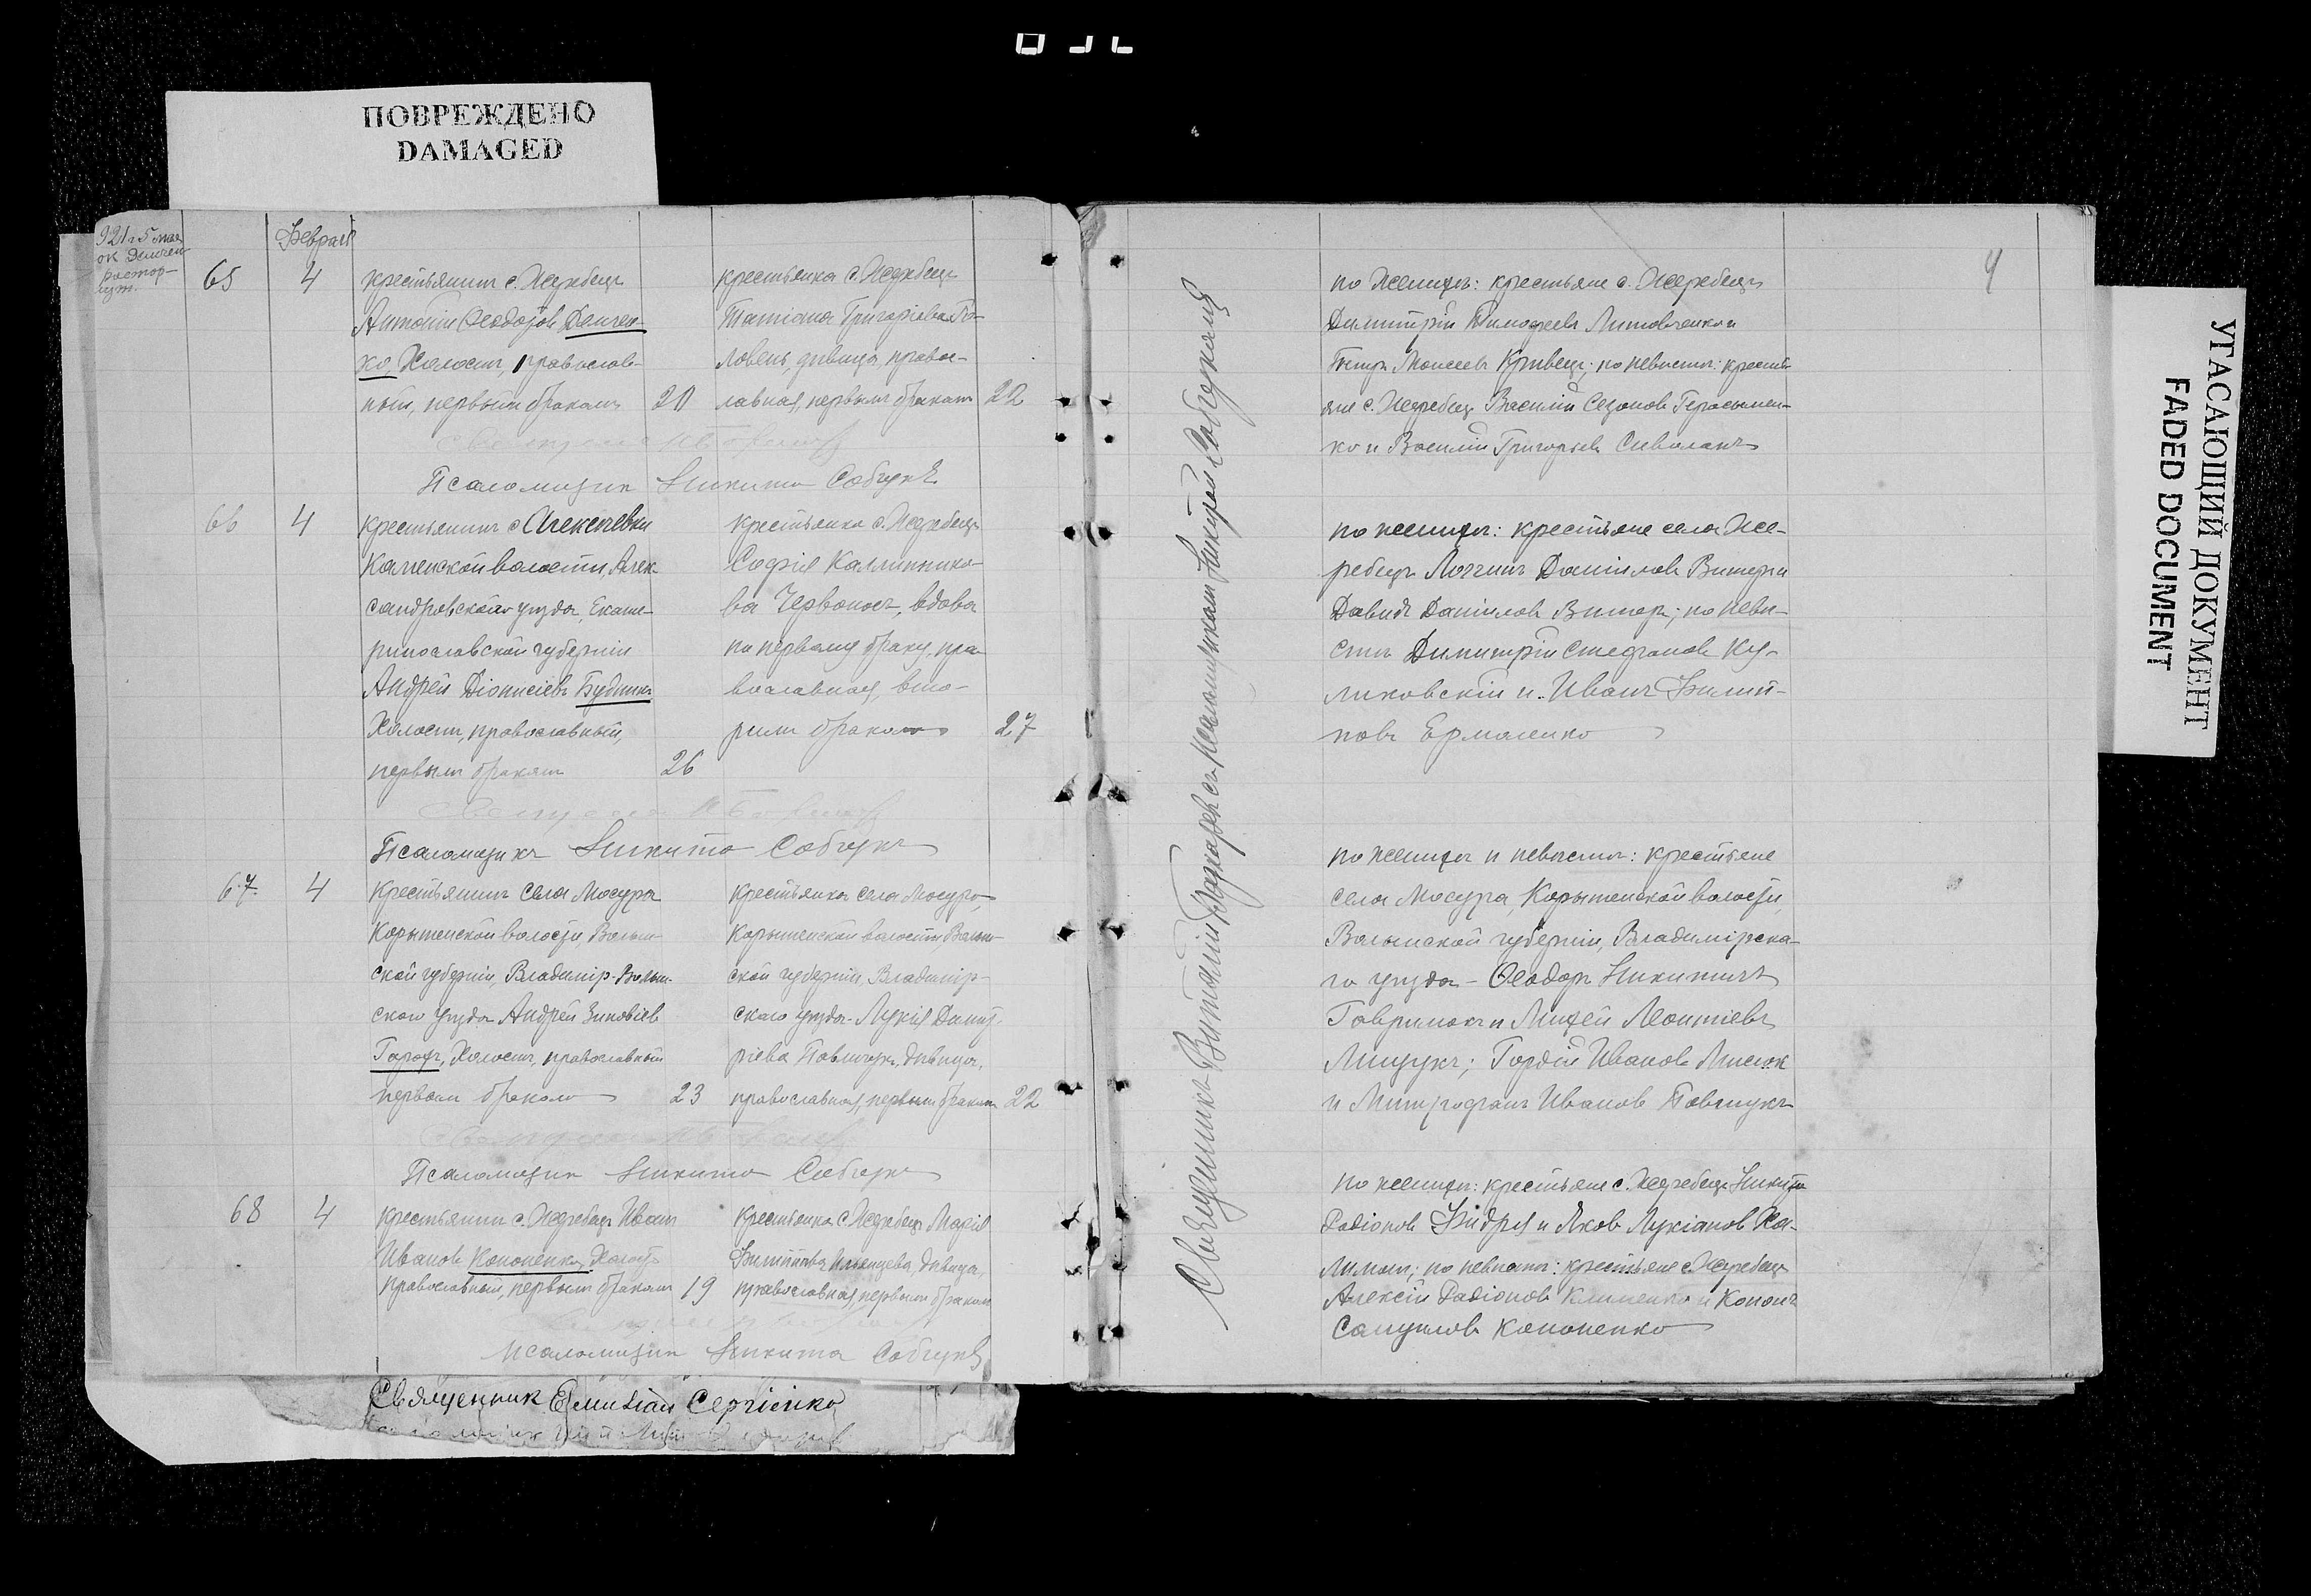 ПОВРЕЖДЕНО
DAMAGED
Февраля
65 4 крестьянинъ с. Жеребецъ
Антоній Ѳеодоровъ Демчен-
ко, Холостъ, православ-
ный, первымъ бракомъ 20
крестьянка с. Жеребецъ
Татіана Григоріева Го-
ловень, дѣвица, правос-
лавная, первымъ бракомъ 22
Псаломщикъ Никита Собчукъ
66 4 крестьянинъ с Алексѣевки
Каменской волости, Алек-
сандровскаго уѣзда, Екате-
ринославской губерніи
Андрей Діонисіевъ Будникъ
Холостъ, православный,
первымъ бракомъ 26
крестьянка с. Жеребецъ
Софія Каллиннико-
ва Червонос, вдова
по первому браку, пра-
вославная, вто-
рымъ бракомъ 27
Псаломщикъ Никита Собчукъ
67. 4 крестьянинъ села Мосура
Корытенской волости, Волын-
ской губерніи, Владимір-Волын-
скаго уѣзда Андрей Зиновіевъ
Холостъ, православный
первымъ бракомъ 23
крестьянка села Мосура,
Корытенской волости Волын-
ской губерніи, Владимір-
скаго уѣзда Лукія Димит-
ріева Павлючукъ, дѣвица,
православная, первымъ бракомъ 22
Псаломщикъ Никита Собчукъ
68 4 крестьянинъ с. Жеребецъ Иванъ
Ивановъ Кононенко, Холостъ
православный, первымъ бракомъ 19
крестьянка с Жеребецъ Марія
дѣвица,
православная, первымъ бракомъ
псаломщикъ Никита Собчукъ
Священник Емиліан Сергіенко
Священникъ Виталій съ псаломщикомъ Никитой Собчукомъ
по женихѣ: крестьяне с. Жеребецъ
Димитрій Тимофеевъ Литовченко и
Петръ Моисеевъ Кривецъ; по невѣстѣ: кресть-
яне с. Жеребецъ Василій Сазоновъ Герасимен-
ко и Василій Григорьевъ Сиволапъ
по женихѣ: крестьяне села Же-
ребецъ Логгинъ Даніиловъ Витеръ и
Давидъ Даніиловъ Витеръ; по невѣ-
стѣ Димитрій Стефановъ Ку-
ликовскій и Иванъ Филип-
повъ Ермоленко
по женихѣ и невѣстѣ: крестьяне
села Мосура, Корытенской волости,
Волынской губерніи, Владимірска-
го уѣзда - Ѳеодоръ Никитичъ
Гаврилюкъ и Михей Леонтіевъ
Лищукъ; Гордій Ивановъ Мисюк
и Митрофанъ Ивановъ Павлюкъ
по женихѣ: крестьяне с. Жеребецъ Никита
Радіоновъ и Яковъ Лукіановъ Ка-
по невѣстѣ: крестьяне с. Жеребецъ
Алексій Радіоновъ Клименко и Кононъ
Самуиловъ Кононенко
4
УГАСАЮЩИЙ ДОКУМЕНТ
FADED DOCUMENT